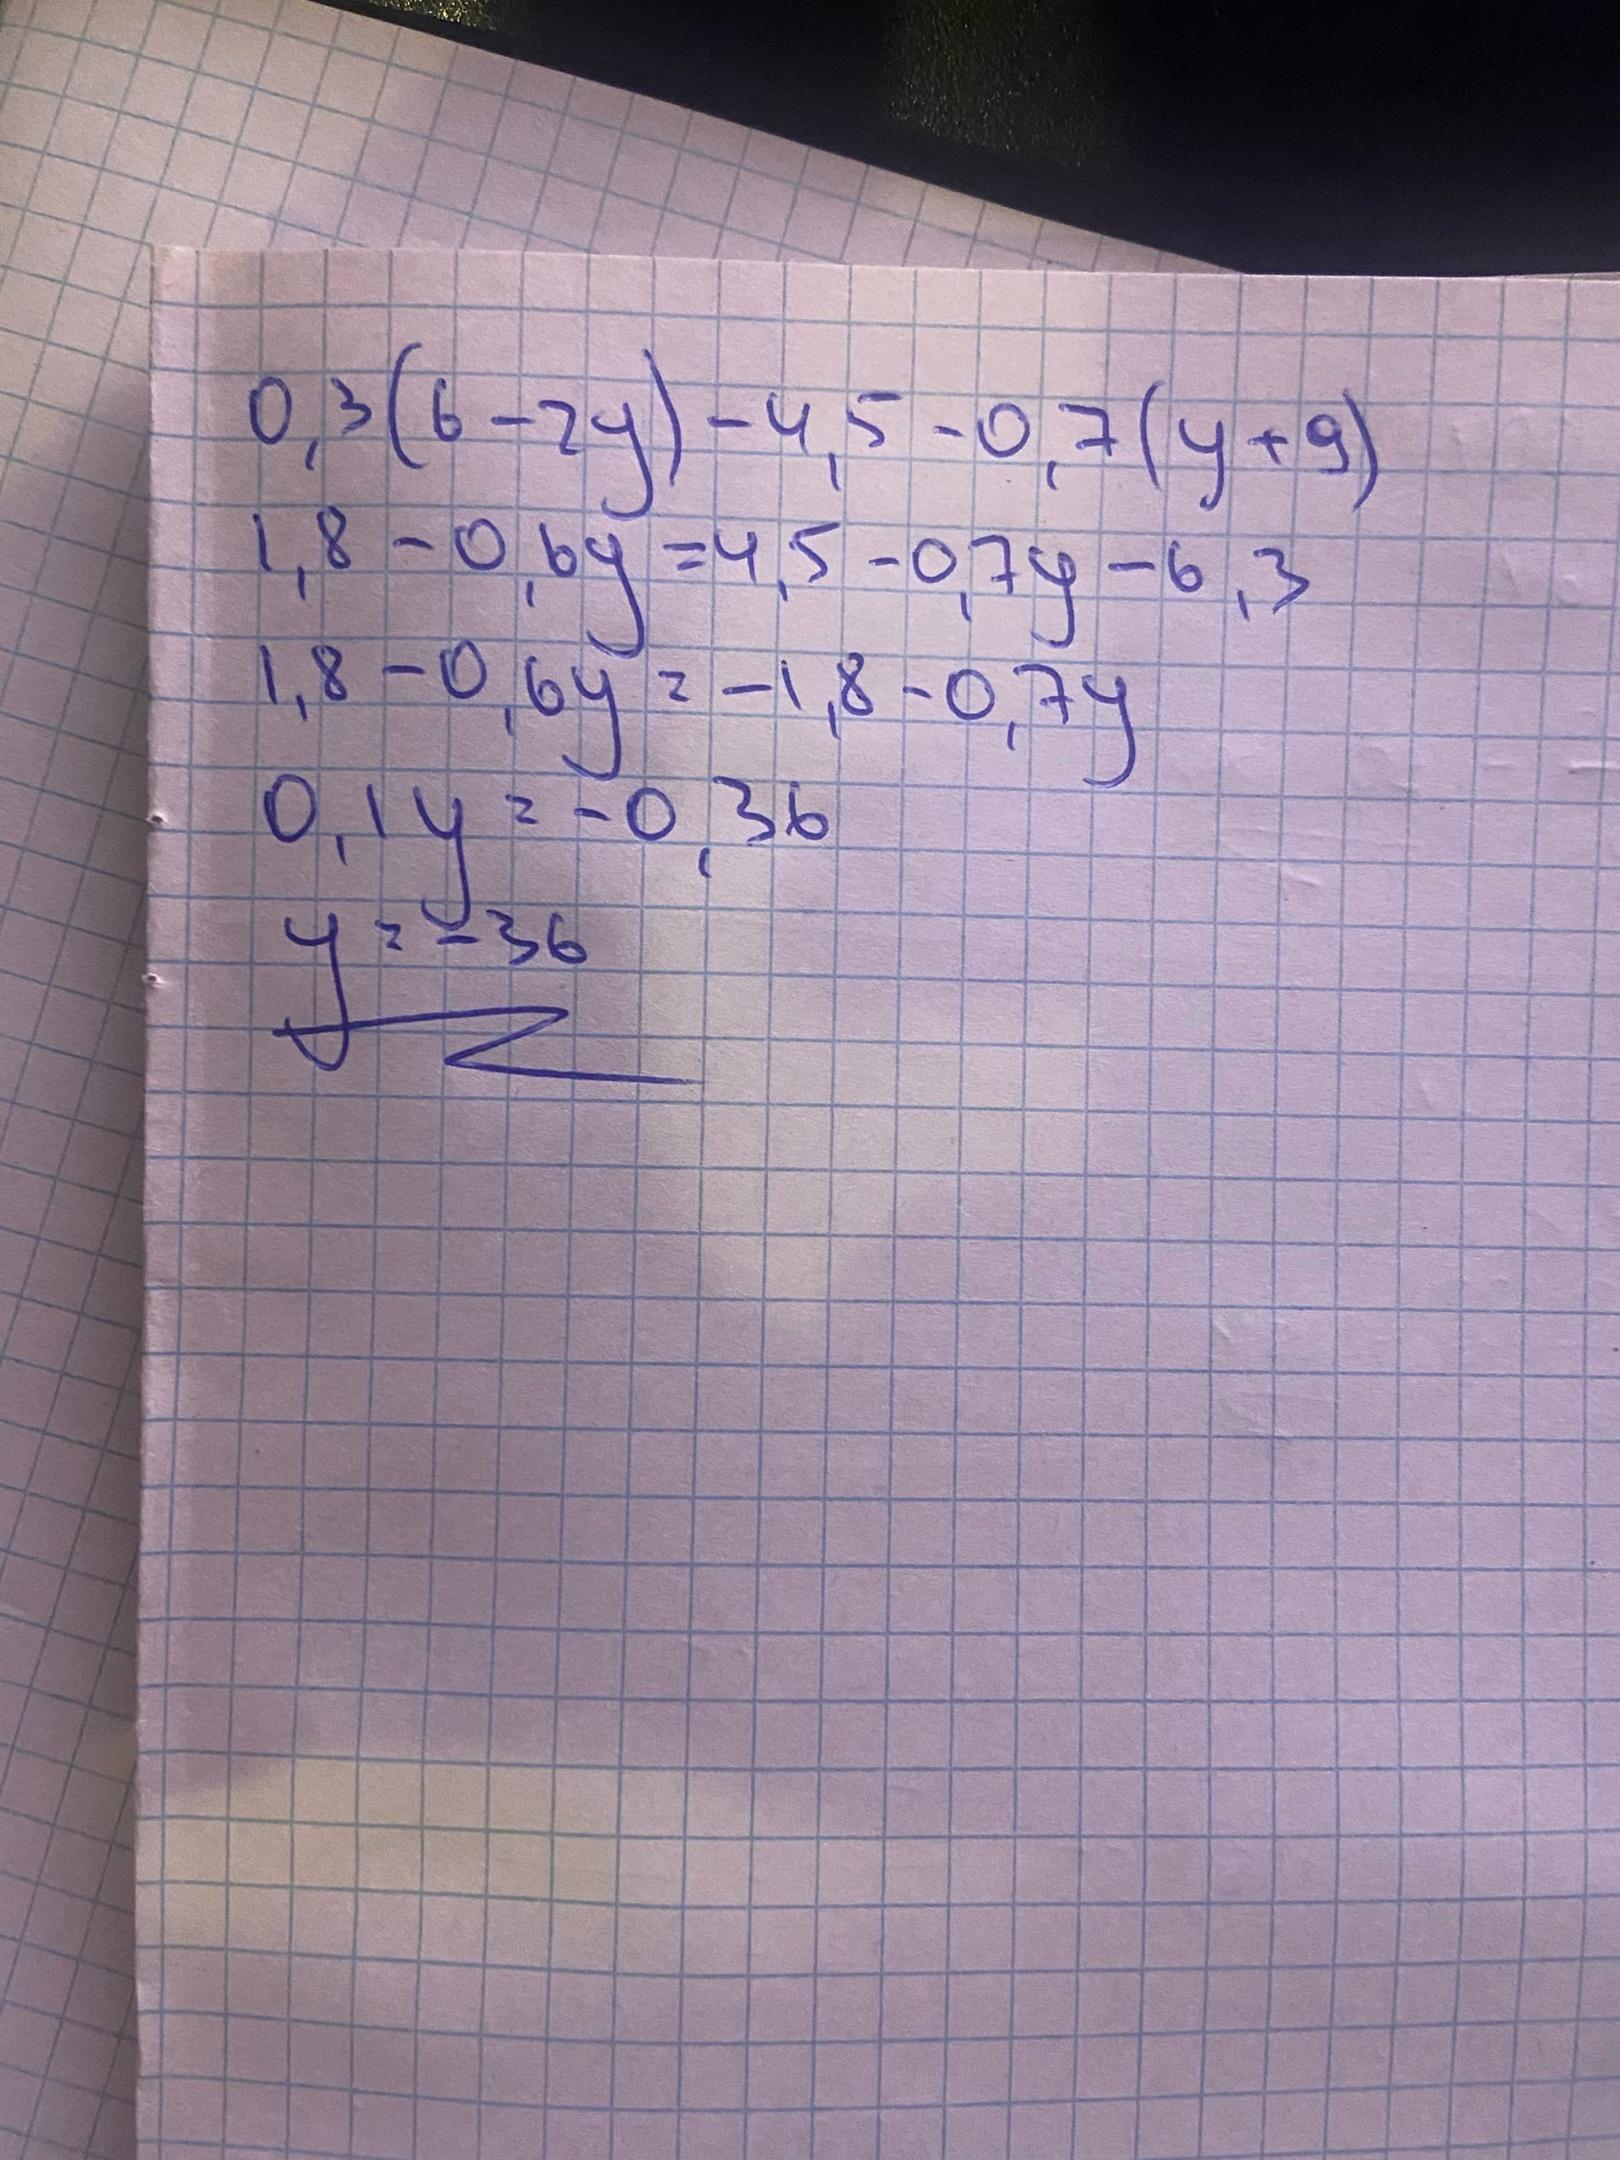 0,3(6-2y)-4,5-0,7(y+9)
1,8-0,6y=4,5-0,7y-6,3
1,8-0,6y=-1,8-0,7y
0,1y=-0,36
y=-36